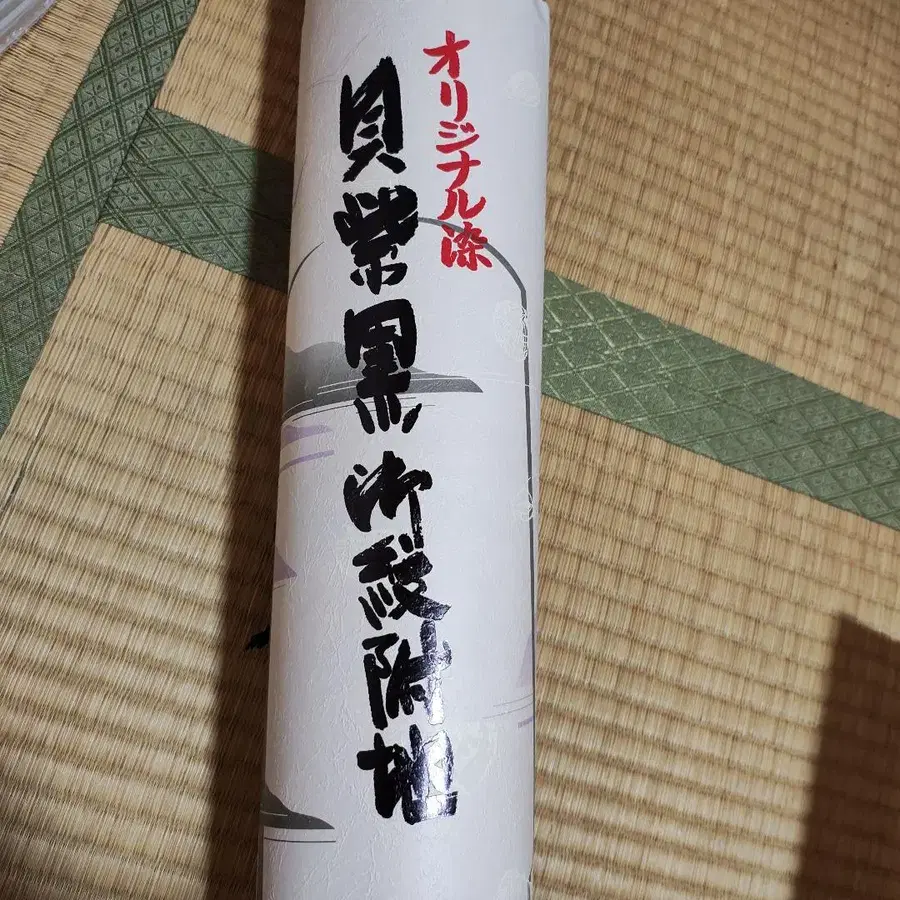 オリジナル染
貝紫黒御紋附地